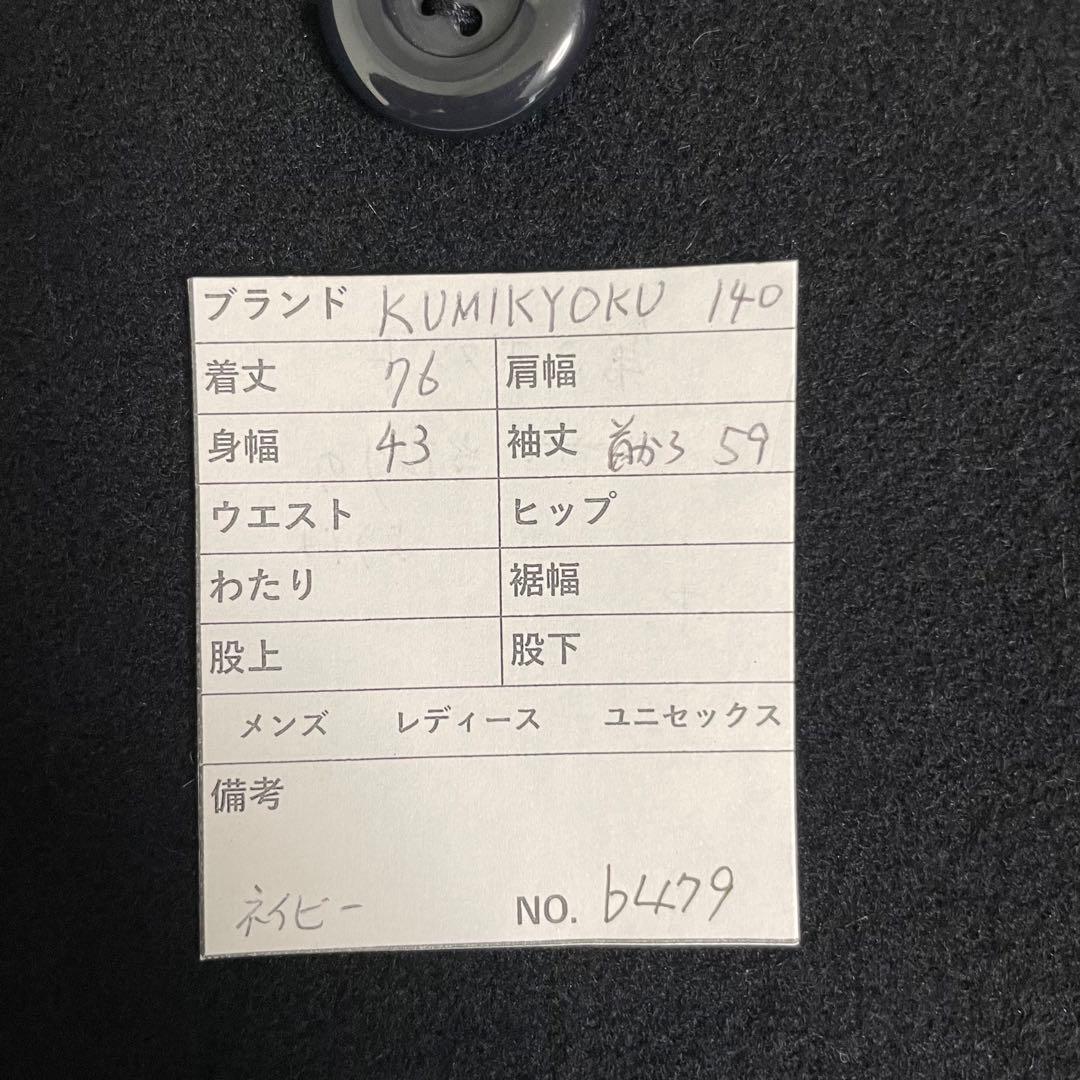 ブランド KUMIKYOKU 140
着丈 76 肩幅
身幅 43 袖丈 首から 59
ウエスト ヒップ
わたり 裾幅
股上 股下
メンズ レディース ユニセックス
備考
ネイビー NO. b479